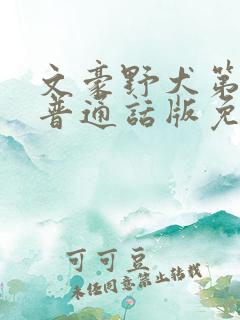 文豪野犬第
普通話版免
可可豆
未经同意禁止转载